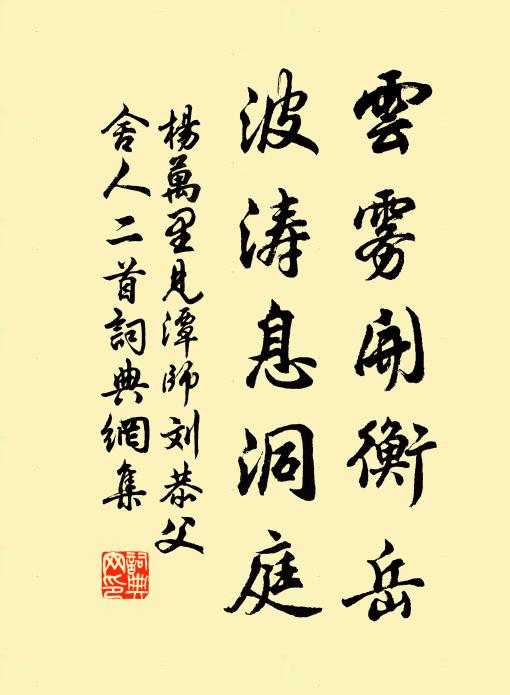 雲雾開衡岳
波涛息洞庭
楊萬里見潭师刘恭父
舍人二首詞典網集
詞典
网印